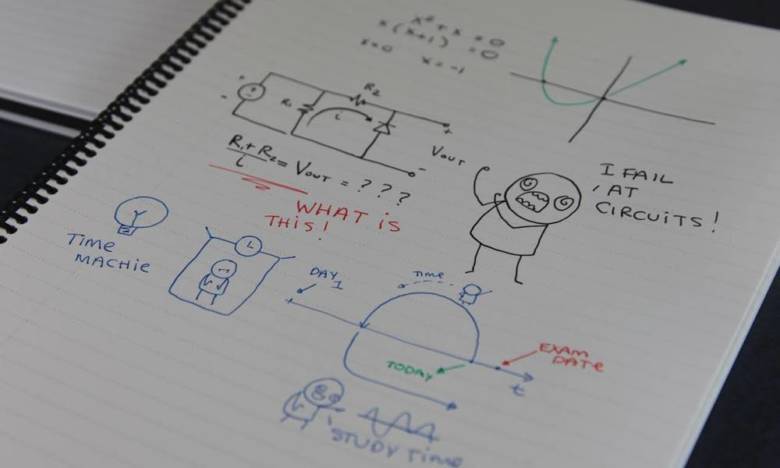 x² + x = 0
x(x+1) = 0
x=0 x=-1
R2
R1
i
+
-
+
-
VOUT
R1+R2/i = VOUT = ???
WHAT IS
THIS!
I FAIL
AT
CIRCUITS!
TIME
MACHIE
DAY
1
TIME
TODAY
EXAM
DATE
t
STUDY TIME